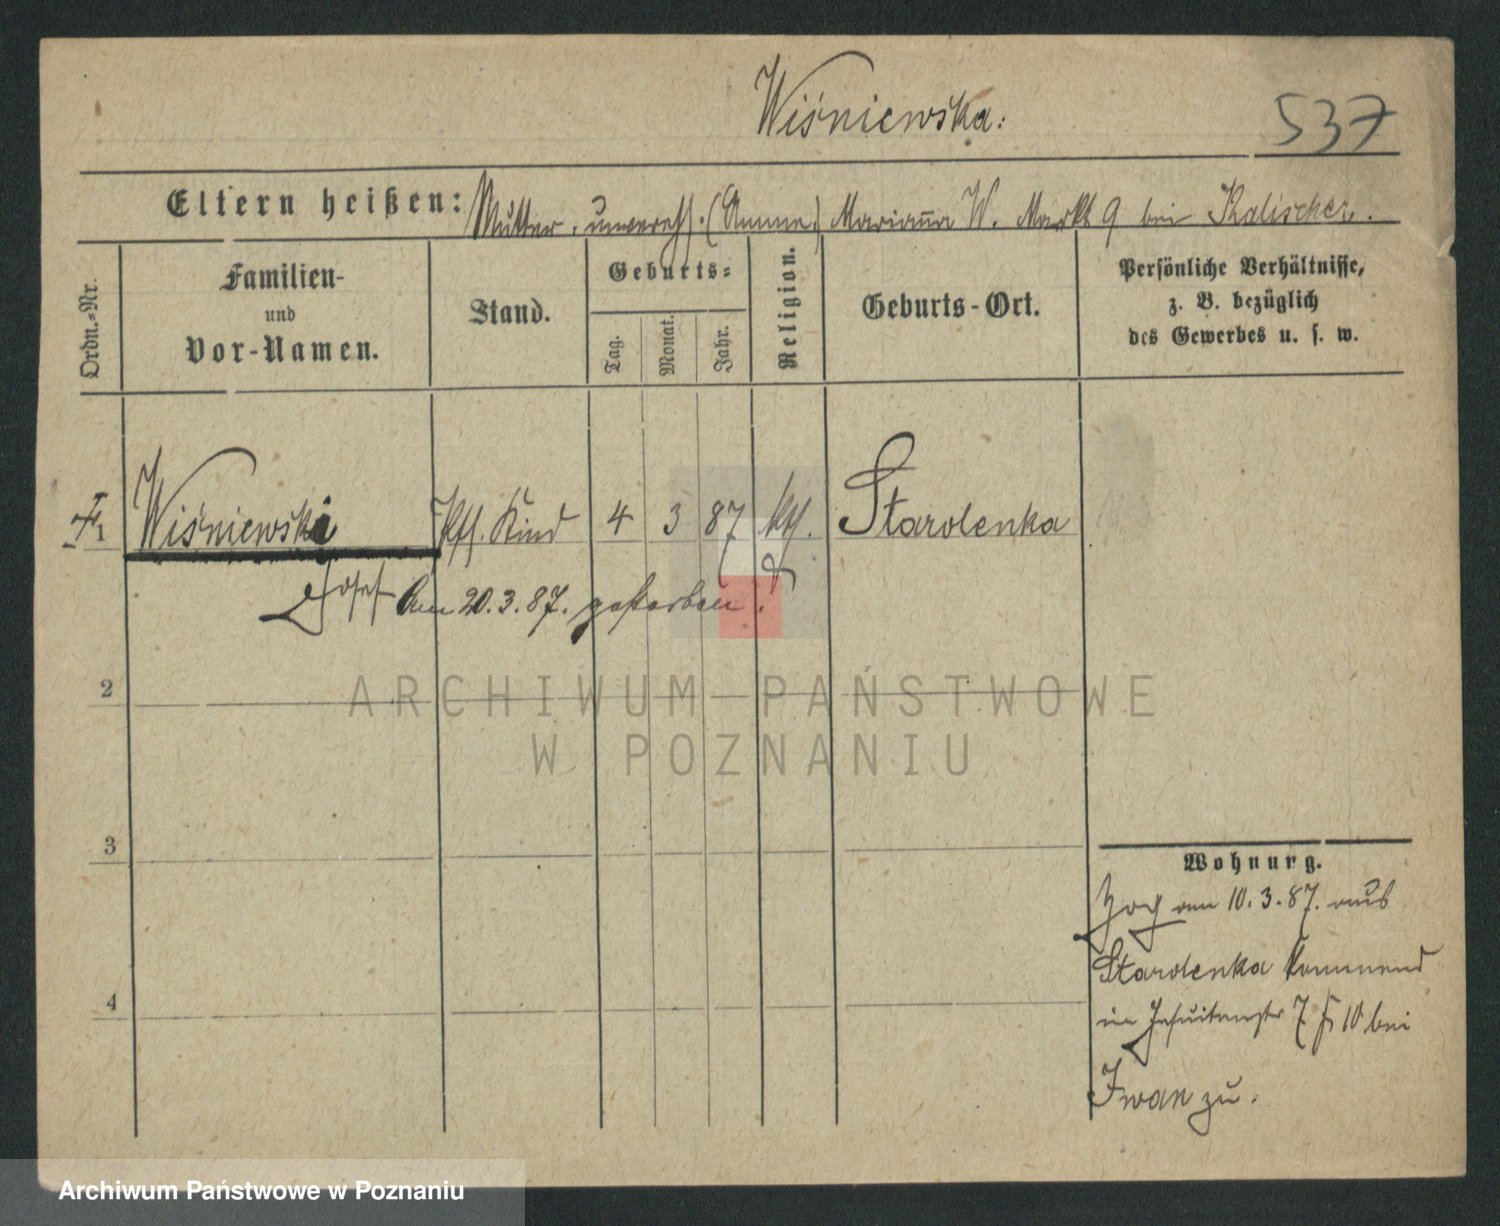 Wiśniewska:
537
Eltern heißen: Mutter, unvereh. (Amme) Marianna W. Markt 9 bei Kalischer.
Ordn.-Nr.
Familien-
und
Vor-Namen.
Stand.
Geburts=
Tag.
Monat.
Jahr.
Religion.
Geburts-Ort.
Persönliche Verhältnisse,
z. B. bezüglich
des Gewerbes u. s. w.
Wiśniewski Pfl. Kind 4 3 87 kth. Starolenka
Josef Am 20.3.87. gestorben.
2
3
4
Wohnung.
Zog am 10.3.87. aus
Starolenka kommend
in Jesuitenstr 7 10 bei
Iwan zu.
ARCHIWUM PAŃSTWOWE
W POZNANIU
Archiwum Państwowe w Poznaniu